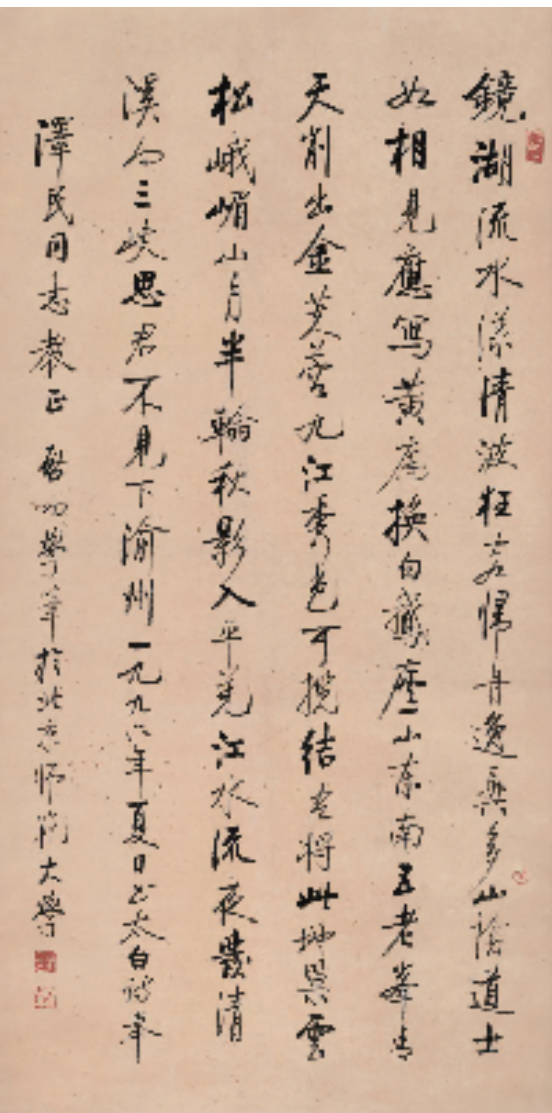 鏡湖流水漾清波狂客歸舟逸興多山陰道士
如相見應寫黃庭換白鵝廬山東南五老峰青
天削出金芙蓉九江秀色可攬結吾將此地巢雲
松峨嵋山月半輪秋影入平羌江水流夜發清
溪向三峽思君不見下渝州一九九六年夏日書太白詩奉
澤民同志教正 啓功學筆於北京師範大學